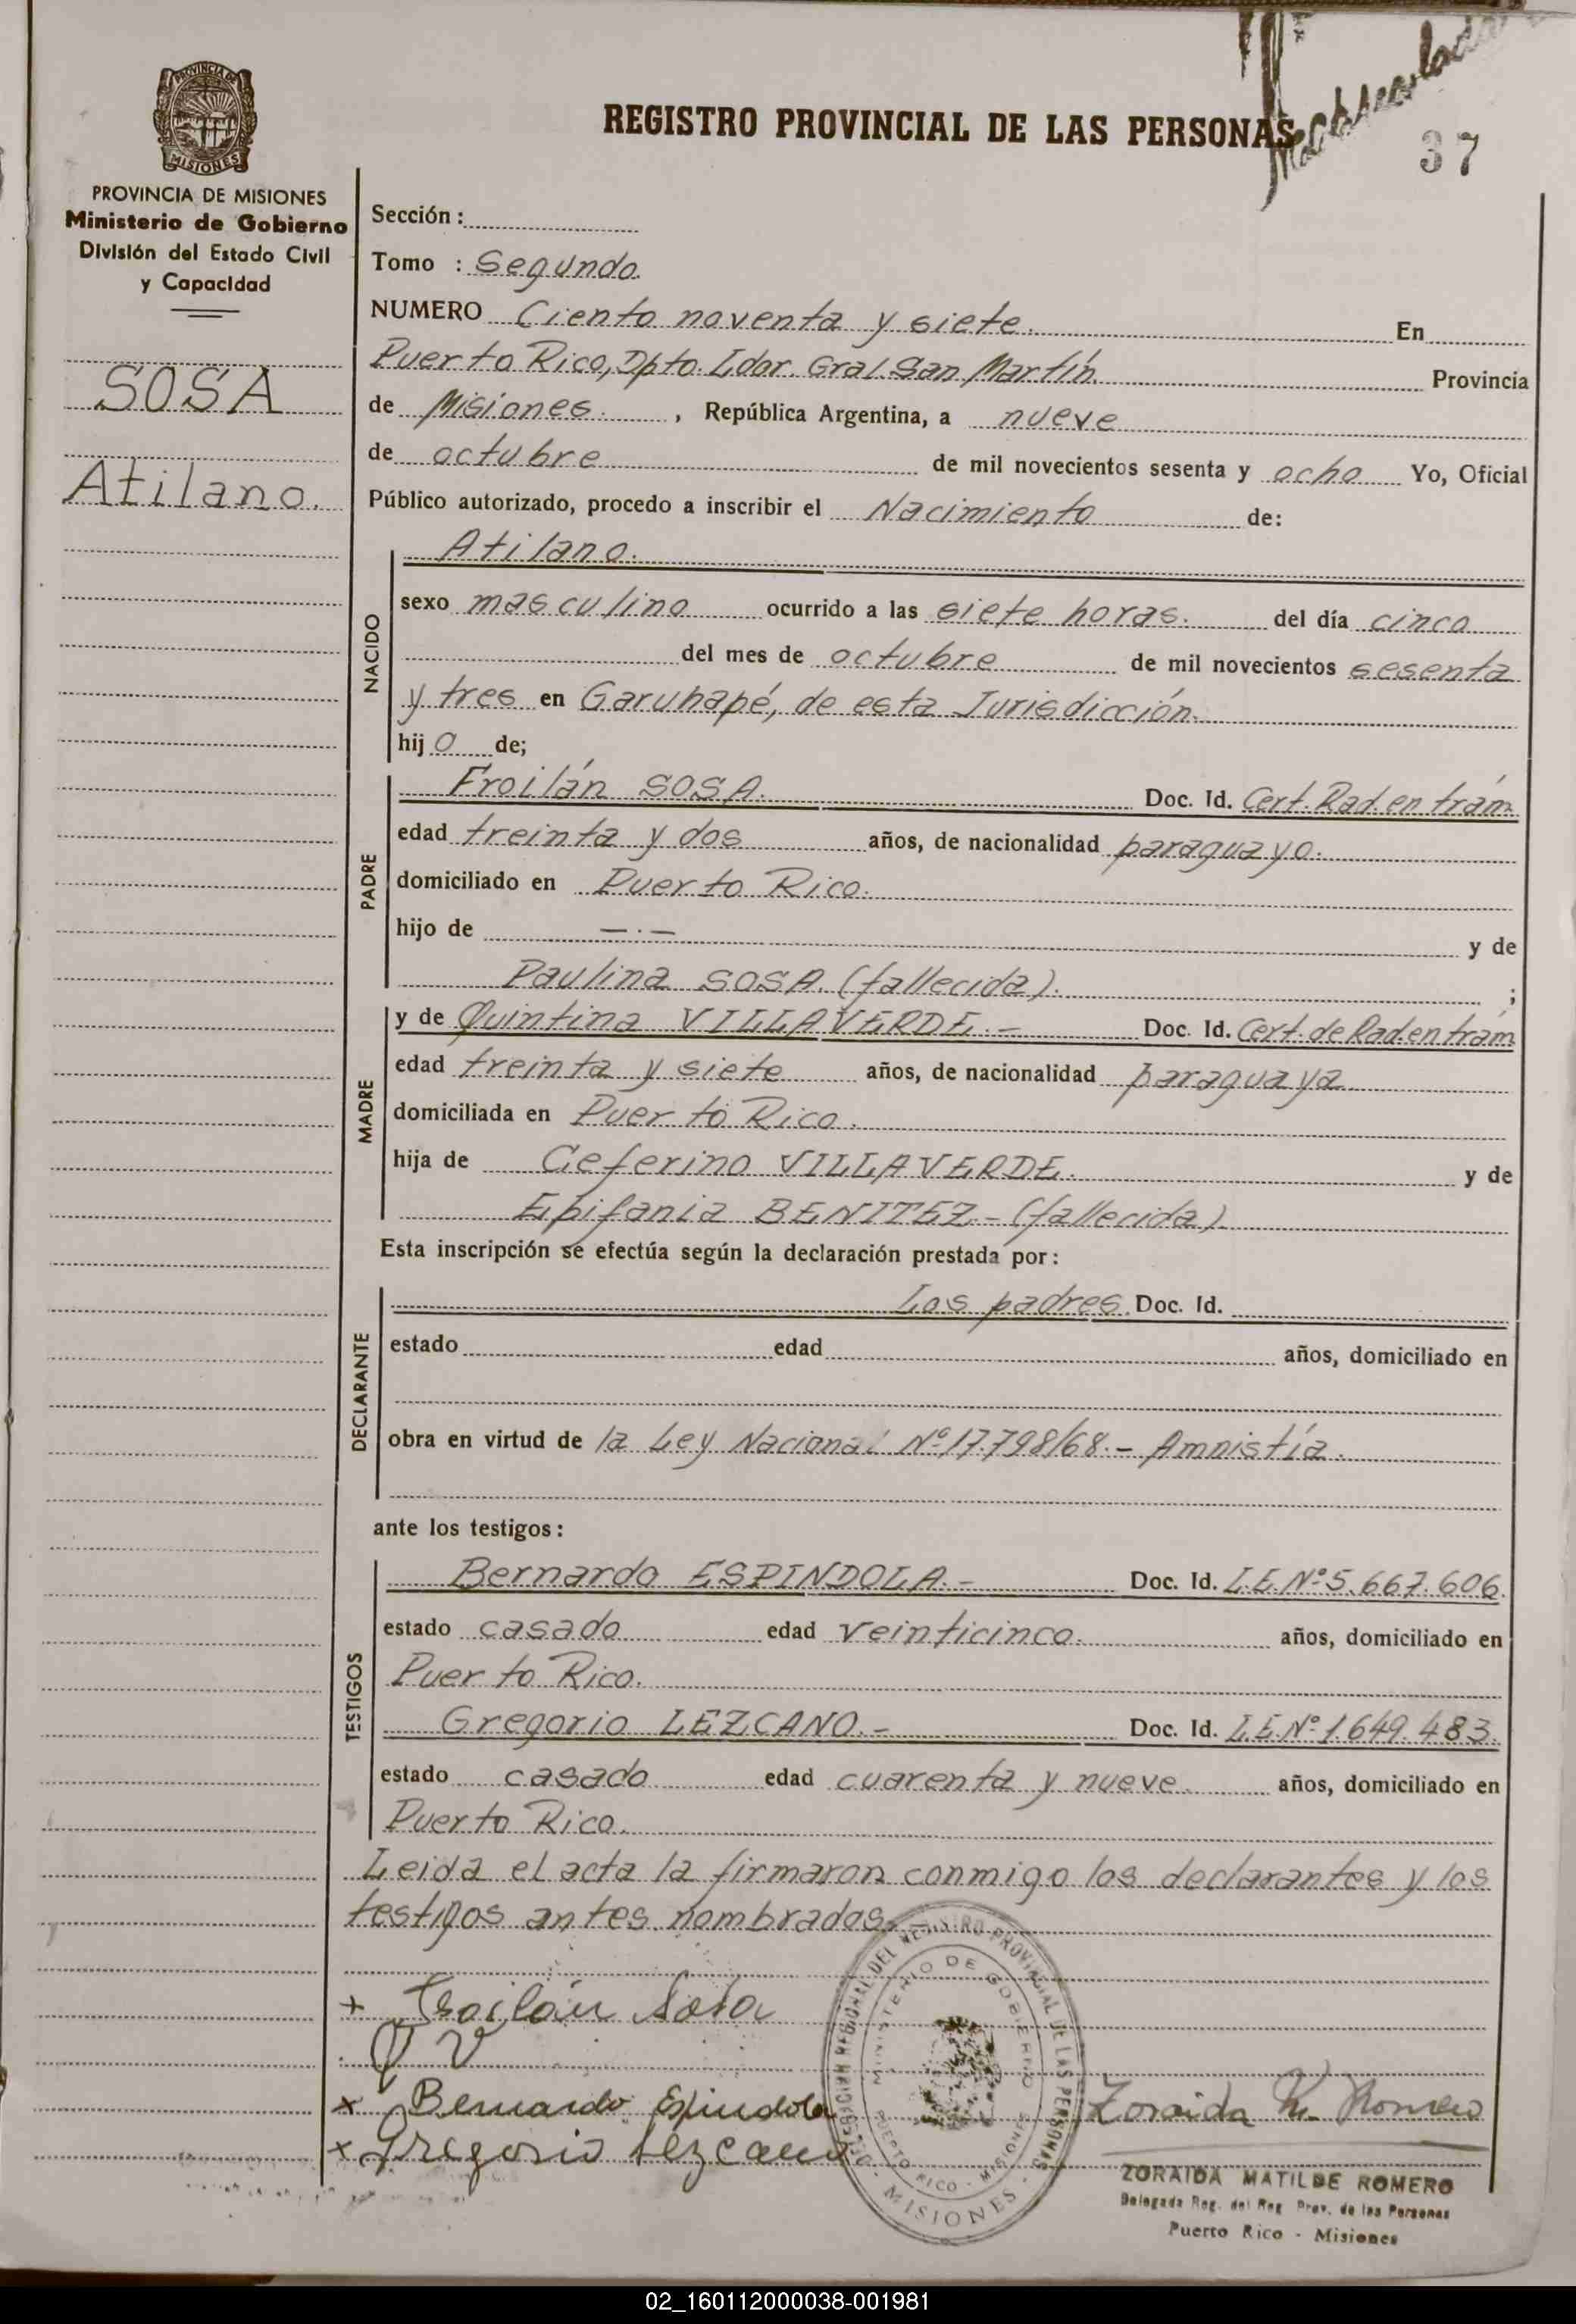 REGISTRO PROVINCIAL DE LAS PERSONAS
37
MISIONES
PROVINCIA DE MISIONES
Ministerio de Gobierno
División del Estado Civil
y Capacidad
SOSA
Atilano.
Sección :
Tomo : Segundo.
NUMERO Ciento noventa y siete. En
Puerto Rico, Dpto. Ldor. Gral. San Martín. Provincia
de Misiones. , República Argentina, a nueve
de octubre de mil novecientos sesenta y ocho Yo, Oficial
Público autorizado, procedo a inscribir el Nacimiento de:
NACIDO
Atilano.
sexo masculino ocurrido a las siete horas. del día cinco
del mes de octubre de mil novecientos sesenta
y tres en Garuhapé, de esta Jurisdicción.
hij o de;
PADRE
Froilán SOSA. Doc. Id. Cert. Rad. en trám.
edad treinta y dos años, de nacionalidad paraguayo.
domiciliado en Puerto Rico.
hijo de —.— y de
Paulina SOSA. (fallecida). ;
MADRE
y de Quintina VILLAVERDE.- Doc. Id. Cert. de Rad. en trám
edad treinta y siete años, de nacionalidad paraguaya
domiciliada en Puerto Rico.
hija de Ceferino VILLAVERDE. y de
Epifania BENITEZ.- (fallecida)
Esta inscripción se efectúa según la declaración prestada por :
DECLARANTE
Los padres. Doc. Id.
estado edad años, domiciliado en
obra en virtud de la Ley Nacional Nº 17.798/68.- Amnistía.
ante los testigos :
TESTIGOS
Bernardo ESPINDOLA.- Doc. Id. L.E. Nº 5.667.606.
estado casado edad veinticinco. años, domiciliado en
Puerto Rico.
Gregorio LEZCANO.- Doc. Id. L.E. Nº 1.649.483.
estado casado edad cuarenta y nueve. años, domiciliado en
Puerto Rico.
Leida el acta la firmaron conmigo los declarantes y los
testigos antes nombrados.
+ Froilán Sosa
Q V
x Bernardo Espindola
x Gregorio Lezcano
DELEGACION REGIONAL DEL REGISTRO PROVINCIAL DE LAS PERSONAS
MINISTERIO DE GOBIERNO
PUERTO RICO - MISIONES
- MISIONES -
Zoraida M. Romero
ZORAIDA MATILDE ROMERO
Delegada Reg. del Reg. Prov. de las Personas
Puerto Rico - Misiones
02_160112000038-001981